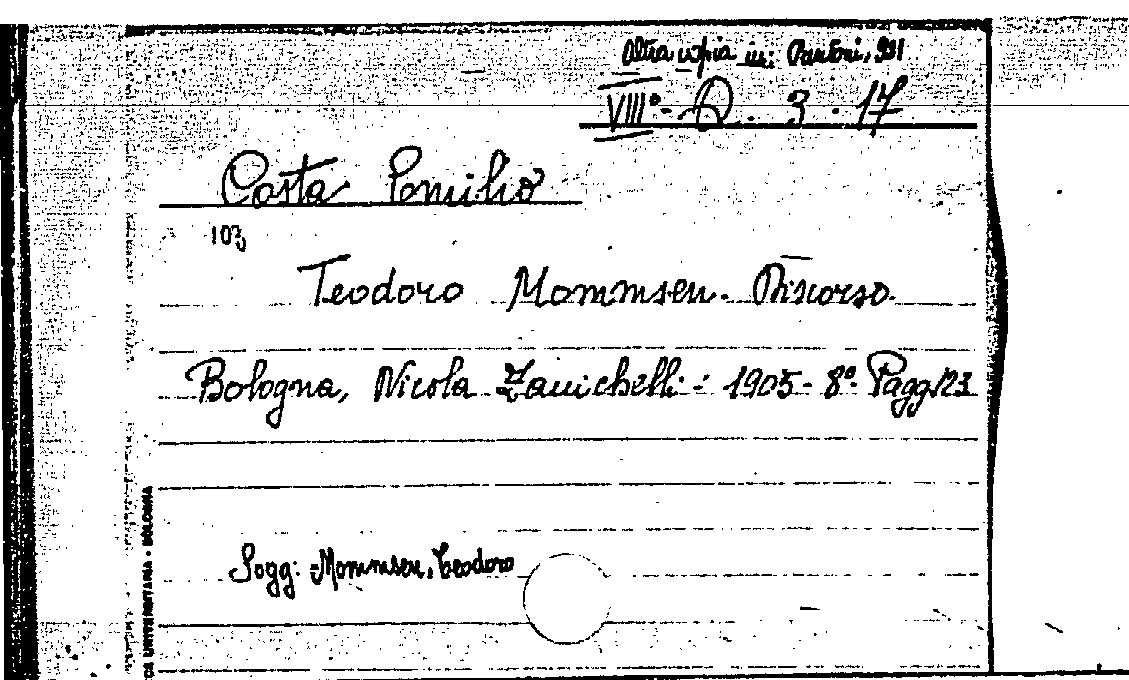 Altra copia in: Pantoni, 991
VIII°- Q. 3. 17
Costa Emilio
103
Teodoro Mommsen. Discorso.
Bologna, Nicola Zanichelli: 1905- 8°. Pagg. 23
Sogg: Mommsen, Teodoro
CA UNIVERSITARIA • BOLOGNA